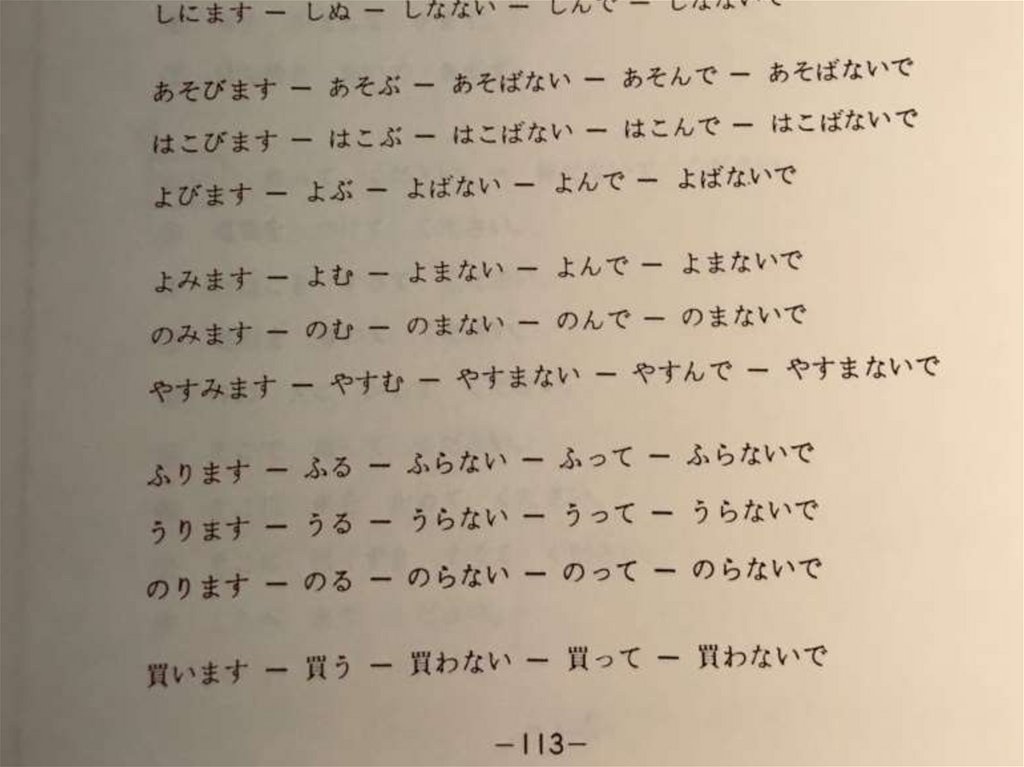 しにます ー しぬ ー しなない ー しんで ー しなないで
あそびます ー あそぶ ー あそばない ー あそんで ー あそばないで
はこびます ー はこぶ ー はこばない ー はこんで ー はこばないで
よびます ー よぶ ー よばない ー よんで ー よばないで
よみます ー よむ ー よまない ー よんで ー よまないで
のみます ー のむ ー のまない ー のんで ー のまないで
やすみます ー やすむ ー やすまない ー やすんで ー やすまないで
ふります ー ふる ー ふらない ー ふって ー ふらないで
うります ー うる ー うらない ー うって ー うらないで
のります ー のる ー のらない ー のって ー のらないで
買います ー 買う ー 買わない ー 買って ー 買わないで
—113—